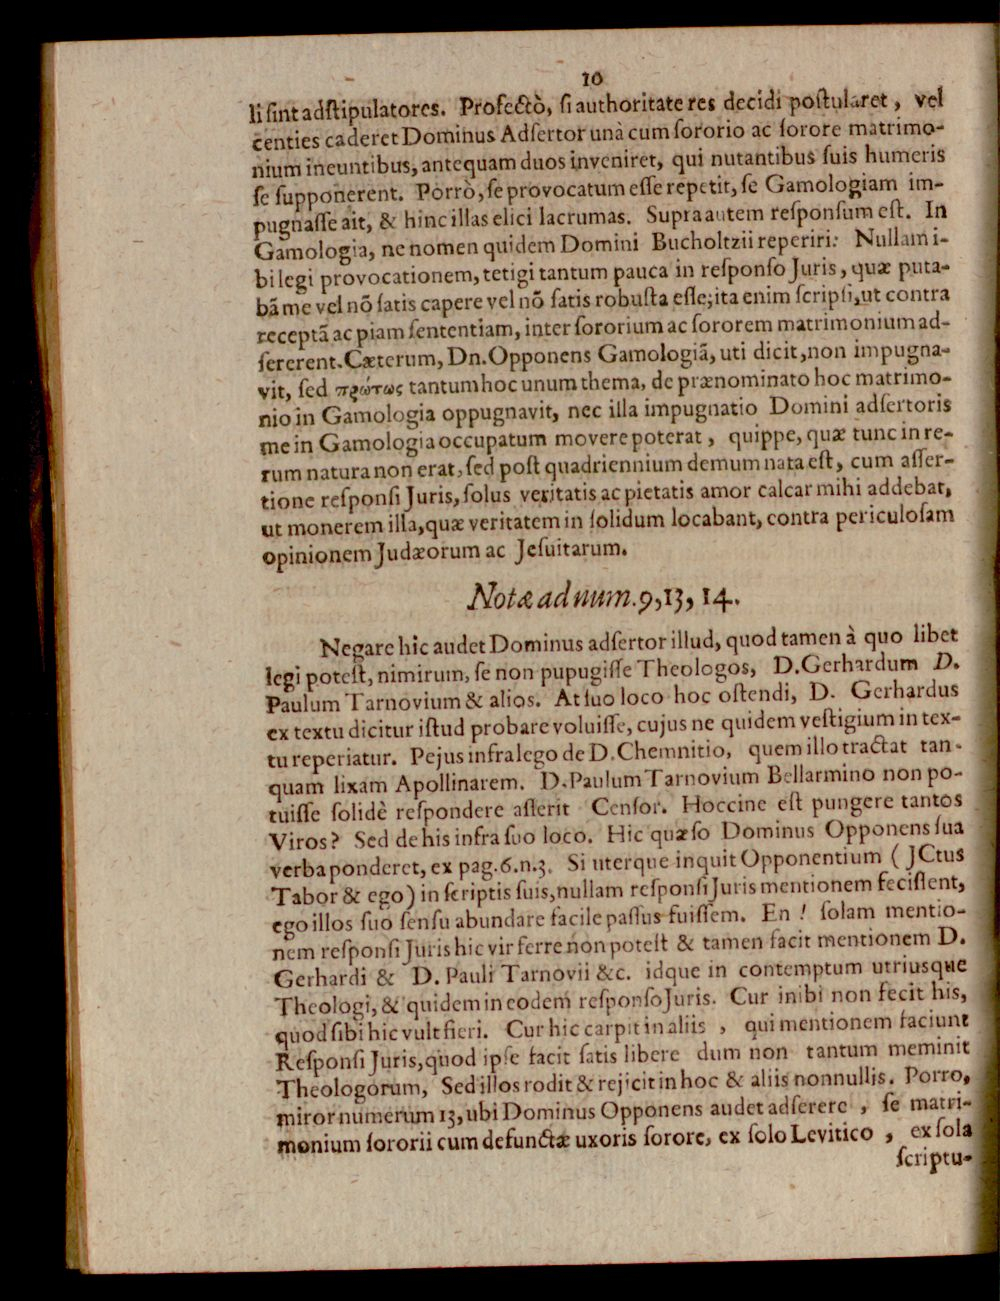 10
li ſint adſtipulatores. Profectò, ſi authoritate res decidi poſtularet, vel
centies caderet Dominus Adſertor unà cum ſororio ac ſorore matrimo-
nium ineuntibus, antequam duos inveniret, qui nutantibus ſuis humeris
ſe ſupponerent. Porrò, ſe provocatum eſſe repetit, ſe Gamologiam im-
pugnaſſe ait, & hinc illas elici lacrumas. Supra autem reſponſum eſt. In
Gamologia, ne nomen quidem Domini Bucholtzii reperiri: Nullam i-
bi legi provocationem, tetigi tantum pauca in reſponſo Juris, quæ puta-
bã me vel nõ ſatis capere vel nõ ſatis robuſta eſſe; ita enim ſcripſi, ut contra
receptã ac piam ſententiam, inter ſororium ac ſororem matrimonium ad-
ſererent. Cæterum, Dn. Opponens Gamologiã, uti dicit, non impugna-
vit, ſed πρώτως tantum hoc unum thema, de prænominato hoc matrimo-
nio in Gamologia oppugnavit, nec illa impugnatio Domini adſertoris
me in Gamologia occupatum movere poterat, quippe, quæ tunc in re-
rum natura non erat, ſed poſt quadriennium demum nata eſt, cum aſſer-
tione reſponſi Juris, ſolus veritatis ac pietatis amor calcar mihi addebat,
ut monerem illa, quæ veritatem in ſolidum locabant, contra periculoſam
opinionem Judæorum ac Jeſuitarum.
Notæ ad num. 9, 13, 14.
Negare hîc audet Dominus adſertor illud, quod tamen à quo libet
legi poteſt, nimirum, ſe non pupugiſſe Theologos, D. Gerhardum D.
Paulum Tarnovium & alios. At ſuo loco hoc oſtendi, D. Gerhardus
ex textu dicitur iſtud probare voluiſſe, cujus ne quidem veſtigium in tex-
tu reperiatur. Pejus infra lego de D. Chemnitio, quem illo tractat tan-
quam lixam Apollinarem. D. Paulum Tarnovium Bellarmino non po-
tuiſſe ſolidè reſpondere aſſerit Cenſor. Hoccine eſt pungere tantos
Viros? Sed de his infra ſuo loco. Hic quæſo Dominus Opponens ſua
verba ponderet, ex pag. 6. n. 3. Si uterque inquit Opponentium (JCtus
Tabor & ego) in ſcriptis ſuis, nullam reſponſi Juris mentionem feciſſent,
ego illos ſuo ſenſu abundare facile paſſus fuiſſem. En! ſolam mentio-
nem reſponſi Juris hic vir ferre non poteſt & tamen facit mentionem D.
Gerhardi & D. Pauli Tarnovii &c. idque in contemptum utriusque
Theologi, & quidem in eodem reſponſo Juris. Cur inibi non fecit his,
quod ſibi hic vult fieri. Cur hic carpit in aliis, qui mentionem faciunt
Reſponſi Juris, quod ipſe facit ſatis libere dum non tantum meminit
Theologorum, Sed illos rodit & rejicit in hoc & aliis nonnullis. Porro,
miror numerum 13, ubi Dominus Opponens audet adſerere, ſe matri-
monium ſororii cum defunctæ uxoris ſorore, ex ſolo Levitico, ex ſola
ſcriptu-